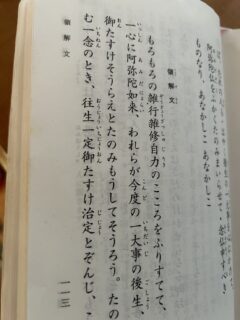 阿弥陀仏をふかくたのみまいらせて、念仏申すべき
ものなり。あなかしこ あなかしこ
領解文
もろもろの雑行雑修自力のこころをふりすてて、
一心に阿弥陀如来、われらが今度の一大事の後生、
御たすけそうらえとたのみもうしてそうろう。たの
む一念のとき、往生一定御たすけ治定とぞんじ、こ
領解文
一一三